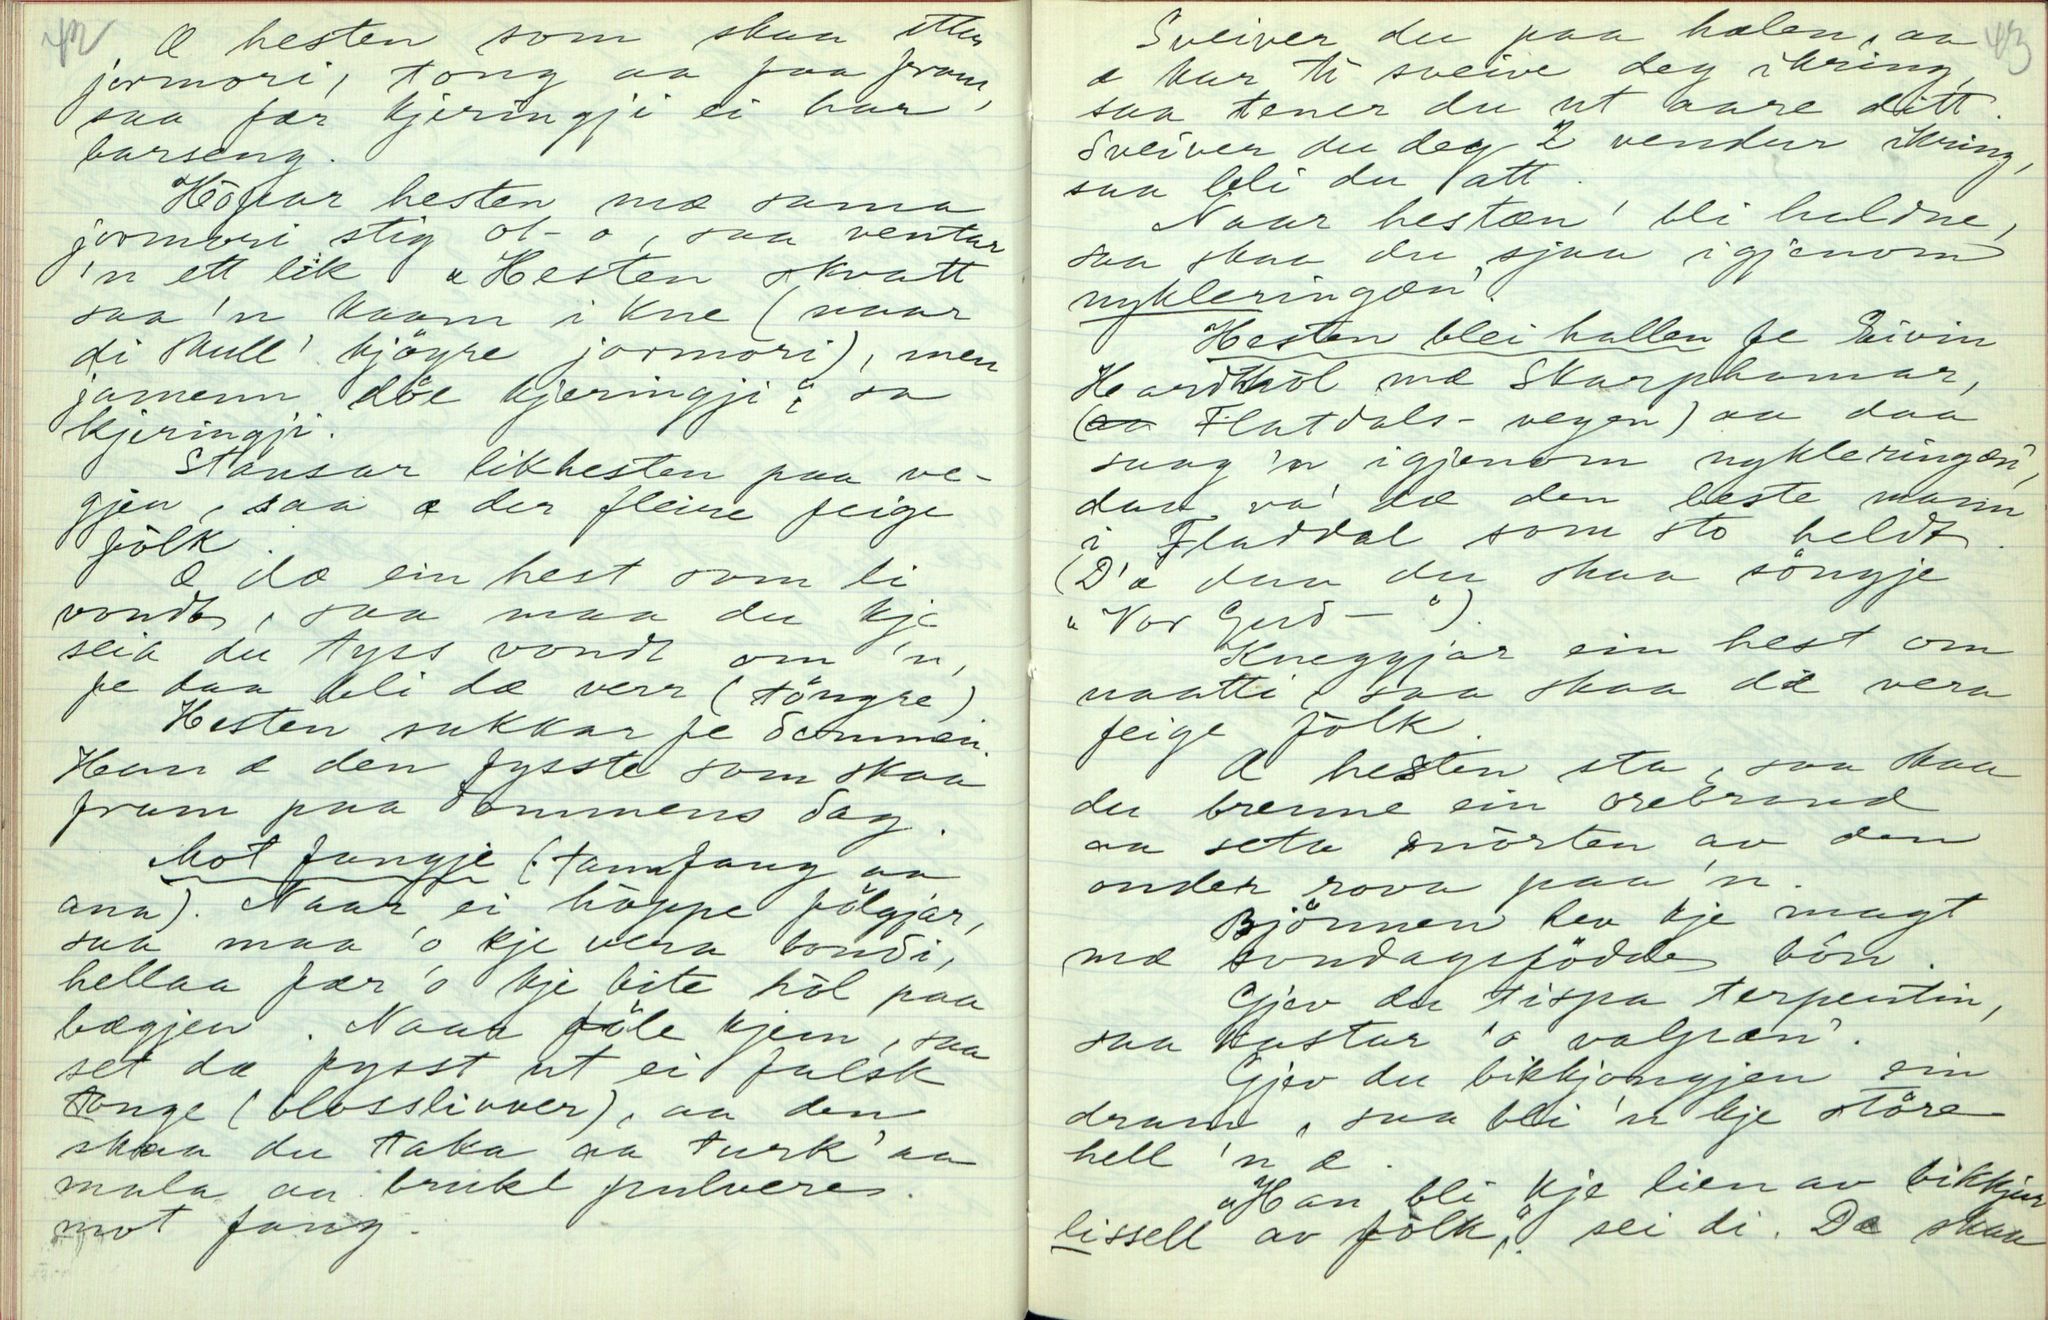 42
Æ hesten som skaa etter
jormori, tong aa faa fram,
saa fær kjeringji ei har
barseng.
Höfsar hesten mæ sama
jormori stig ot-o, saa ventar
'n ett lik „Hesten skvatt
saa 'n kaam i kne (naar
di skull' kjöyre jormori), men
jamenn döe kjeringji", sa
kjeringji.
Stansar likhesten paa ve-
gjen, saa æ der fleire feige
fölk.
Æ dæ ein hest som li
vondt, saa maa du kje
seia du tyss vondt om 'n,
fe daa bli dæ verr (töngre)
Hesten sukkar fe dommen.
Han æ den fysste som skaa
fram paa dommens dag.
Mot fangje (tamfang aa
ana). Naar ei höppe fölgjar,
saa maa 'o kje vera bondi,
hellaa fær 'o kje bite höl paa
bægjen. Naar föle kjem, saa
set dæ fysst ut ei falsk
tonge (blosslivver), aa den
skaa du taka aa turk' aa
mala aa brukt pulveres.
mot fang.
43
Sveiver du paa halen, aa
æ kar ti sveive deg ikring,
saa tener du ut aare ditt.
Sveiver du deg 2 vendur ikring,
saa bli du att.
Naar hestæn' bli haldne,
saa skaa du sjaa igjenom
nykleringæn'.
Hesten blei hallen fe Eivin
Haardkhöl mæ Skarphamar,
(aa Flatdals-vegen) aa daa
saag 'n igjenom nykleringæn',
daa va' dæ den beste mann
i Fladdal som sto heldt.
(D'æ daa du skaa söngje
„Vor Gud —").
Kneggjar ein hest om
naatti, saa skaa dæ vera
feige fölk.
Æ hesten sta, saa skaa
du brenne ein orebrand
aa seta snörten av den
onder rova paa 'n.
Björnen hev kje magt
mæ sondagsfödde bön.
Gjev du tispa terpentin,
saa kastar 'o valpæn'.
Gjev du bikkjongjen ein
dram, saa bli 'n kje störe
hell 'n æ.
„Han bli kje lien av bikkjur
lissell av fölk," sei di. Dæ skaa